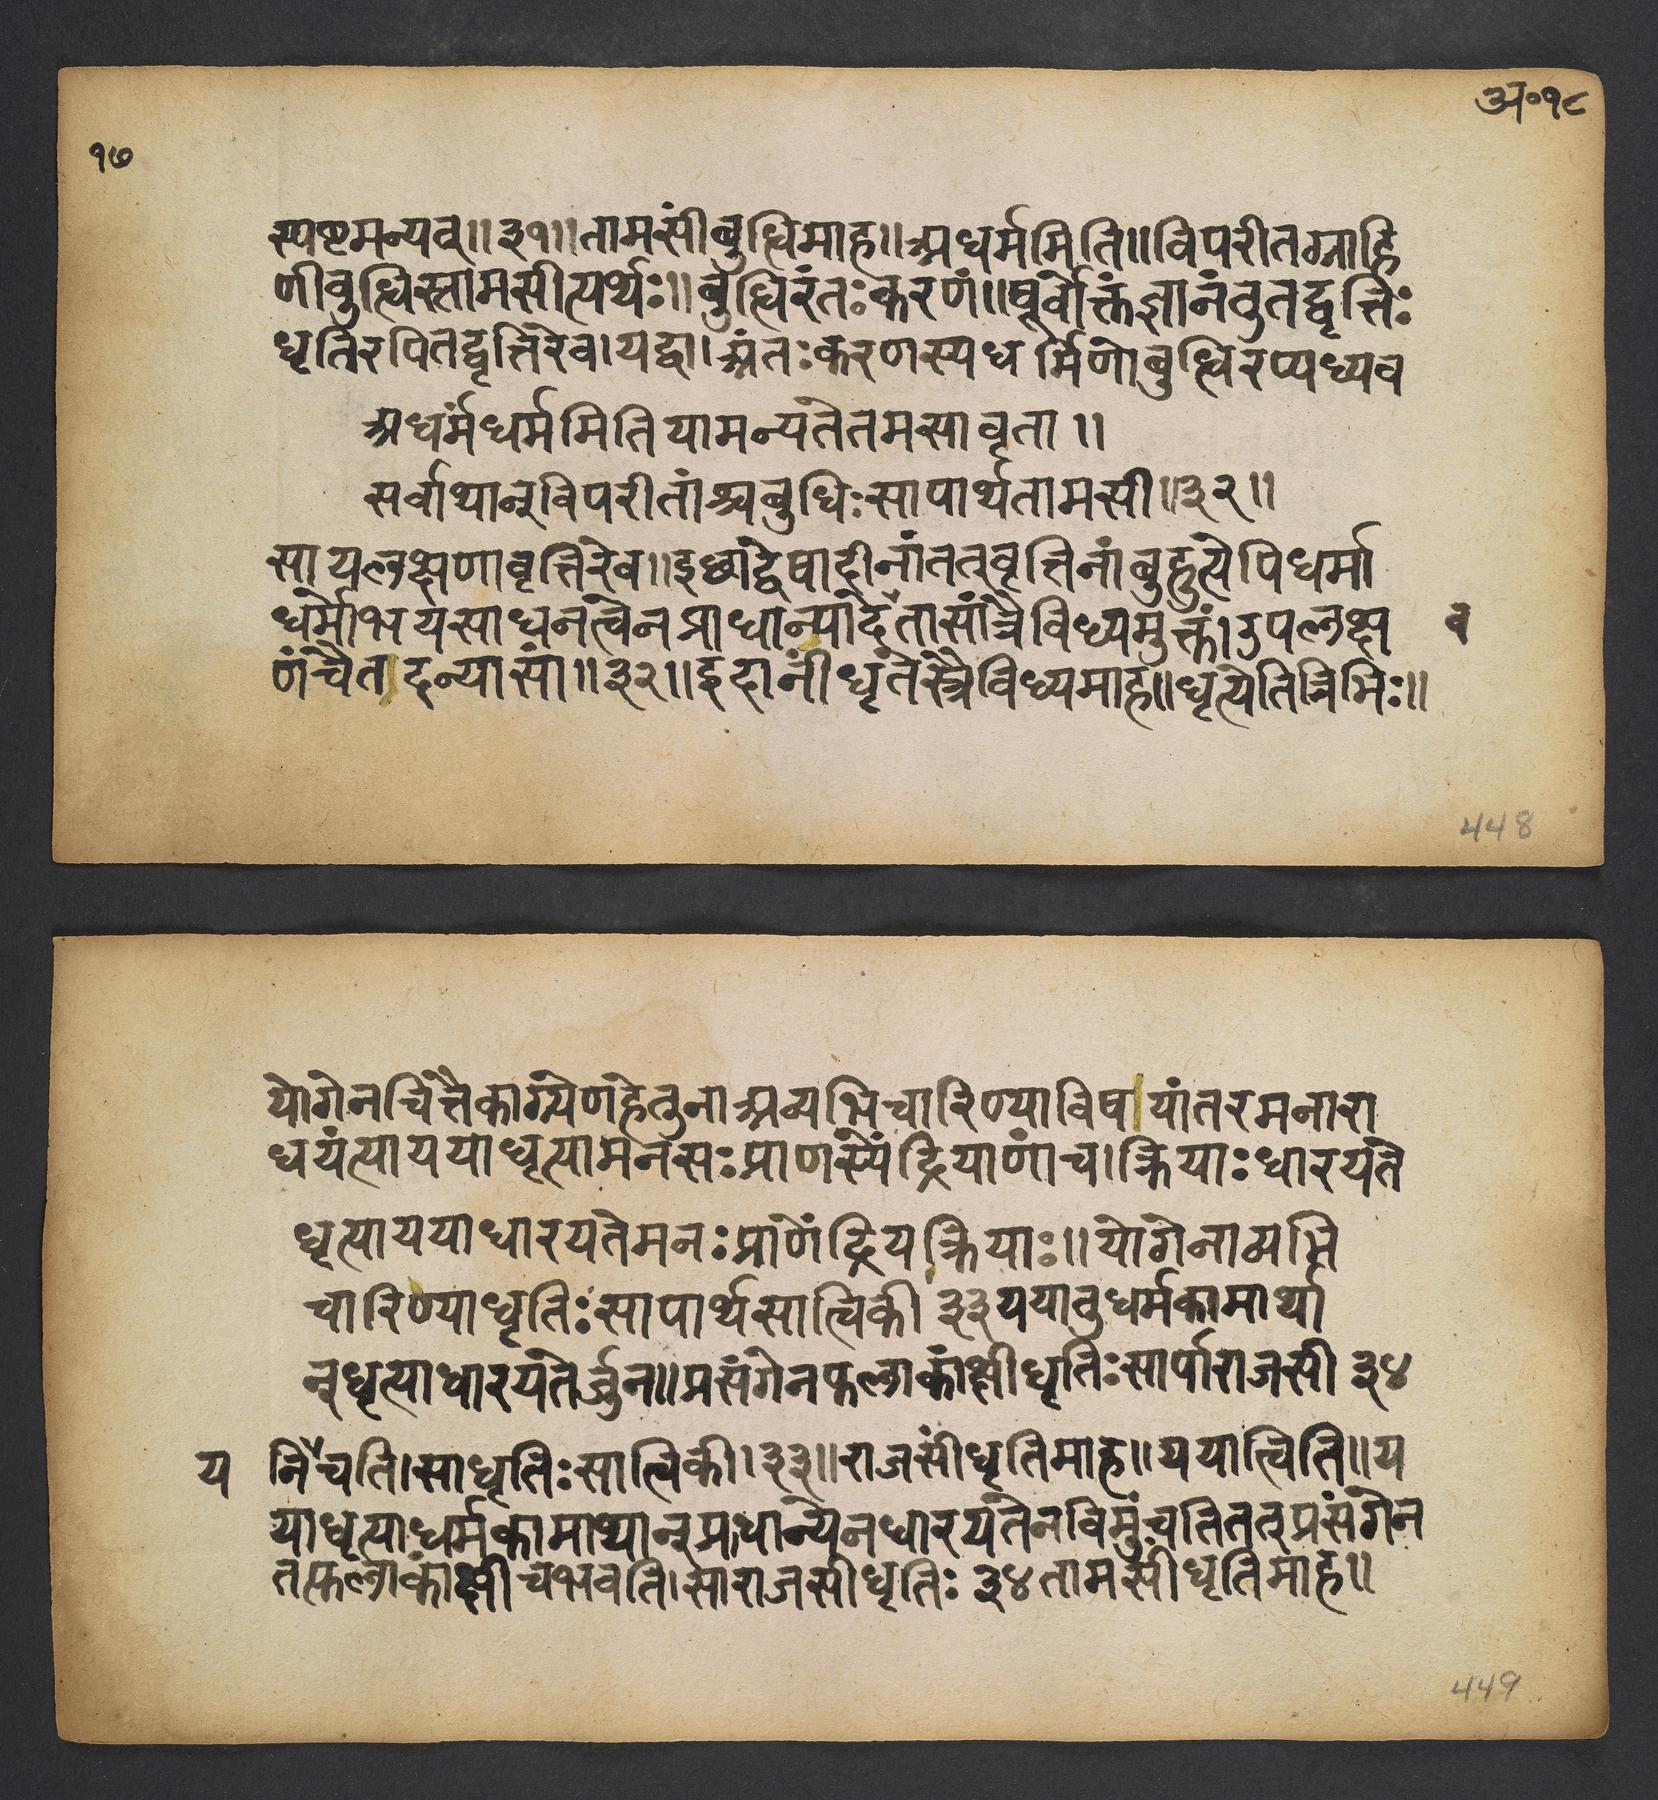 अ॰१८
१७
स्पष्टमन्यत्॥३१॥तामसींबुद्धिमाह॥अधर्ममिति॥विपरीतग्राहि
णीबुद्धिस्तामसीत्यर्थः॥बुद्धिरंतःकरणं॥पूर्वोक्तंज्ञानंतुतद्वृत्तिः
धृतिरपितद्वृत्तिरेव।यद्वा।अंतःकरणस्यधर्मिणोबुद्धिरप्यध्यव
अधर्मंधर्ममितियामन्यतेतमसावृता॥
सर्वार्थान्विपरीतांश्चबुधिःसापार्थतामसी॥३२॥
सायलक्षणावृत्तिरेव॥इछाद्वेषादीनांतत्वृत्तिनांबहुत्वेपिधर्मा
धर्मोभयसाधनत्वेनप्राधान्यादेतासांत्रैविध्यमुक्तं।उपलक्ष
व
णंचैतदन्यासां॥३२॥इदानींधृतेस्त्रैविध्यमाह॥धृत्येतित्रिभिः॥
448
योगेनचित्तैकाग्र्येणहेतुनाअव्यभिचारिण्याविषयांतरमनारा
धयंत्याययाधृत्यामनसःप्राणस्येंद्रियाणांच।क्रियाःधारयते
धृत्याययाधारयतेमनःप्राणेंद्रियक्रियाः॥योगेनाव्यभि
चारिण्याधृतिःसापार्थसात्विकी३३ययातुधर्मकामार्था
न्धृत्याधारयतेर्जुन॥प्रसंगेनफलाकांक्षीधृतिःसार्पाराजसी३४
य
निचैति।साधृतिःसात्विकी।३३॥राजसींधृतिमाह॥ययात्विति॥य
याधृत्याधर्मकामार्थान्प्रधान्येनधारयतेनविमुंचतितत्प्रसंगेन
तत्फलाकांक्षीचभवति।साराजसीधृतिः३४तामसींधृतिमाह॥
449